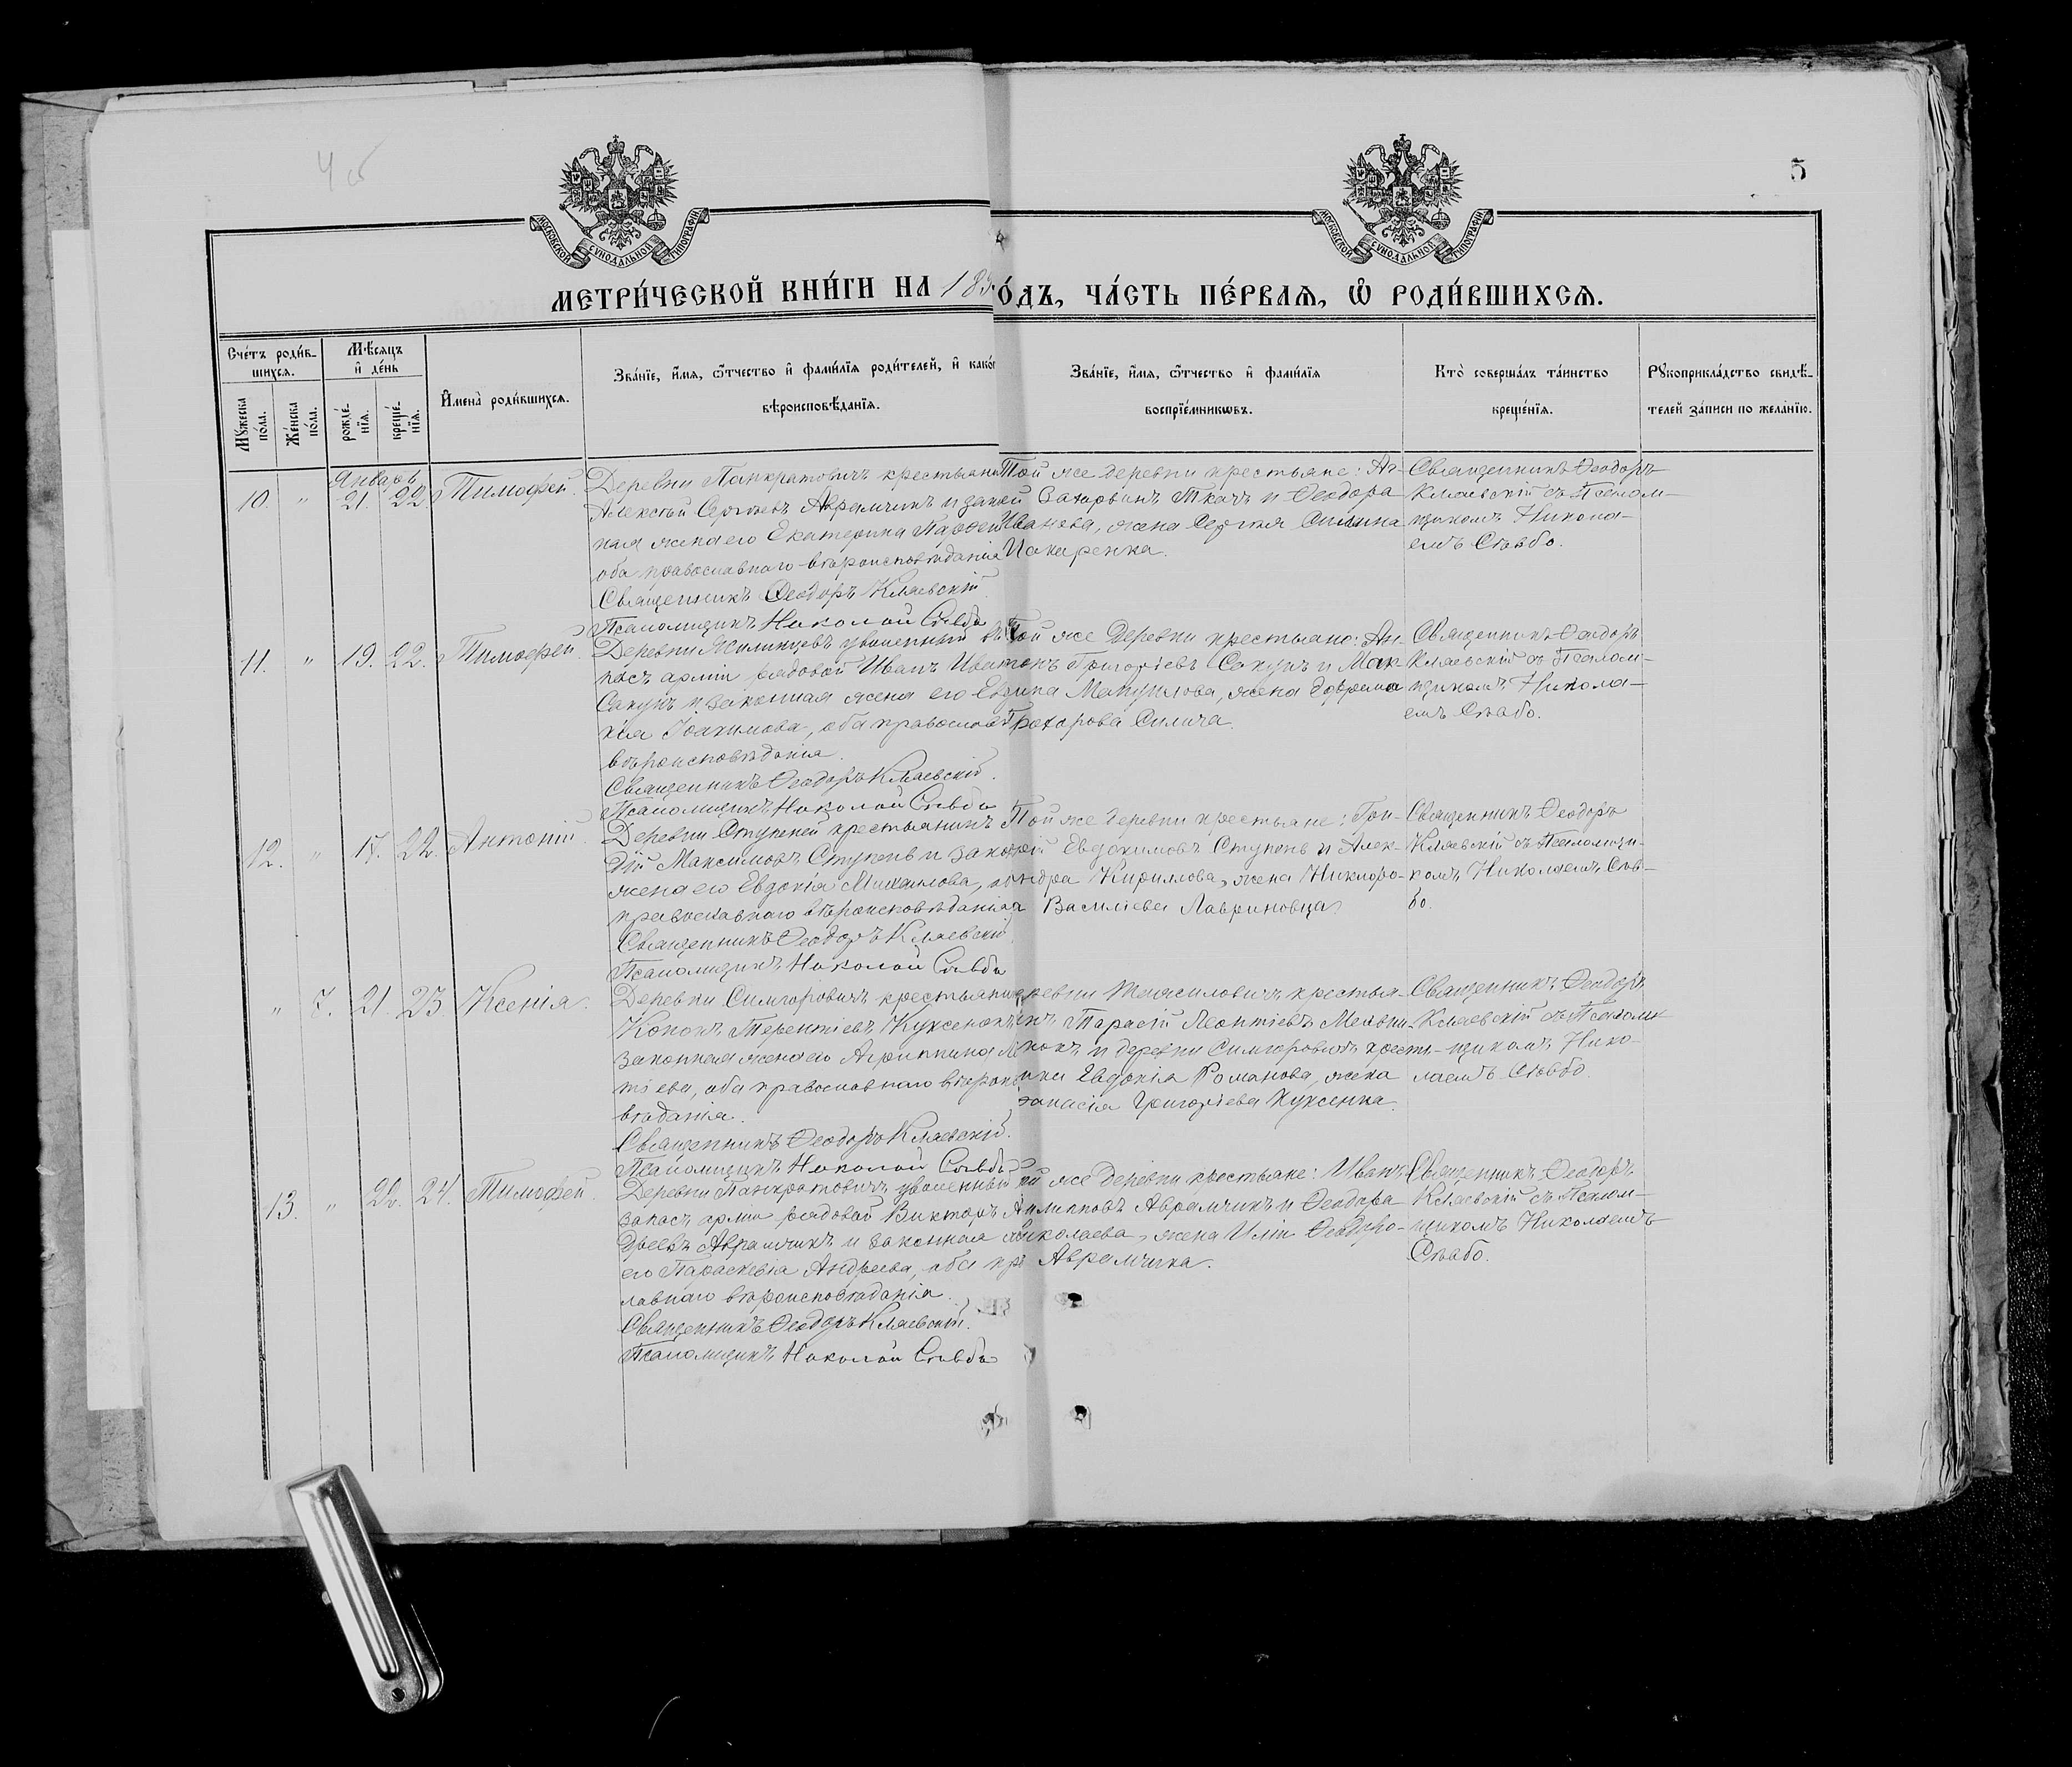 4 об
5
МОСКОВСКОЙ СѴНОДАЛЬНОЙ ТИПОГРАФІИ
МОСКОВСКОЙ СѴНОДАЛЬНОЙ ТИПОГРАФІИ
МЕТРИ́ЧЕСКОЙ КНИ́ГИ НА 189
О́ДЪ, ЧА́СТЬ ПЕ́РВАЯ, Ѡ҆ РОДИ́ВШИХСЯ.
Сче́тъ роди́в-
шихся.
Мꙋ́жеска по́ла.
Же́нска по́ла.
Мѣ́сяцъ
и҆ де́нь
рожде́-
нїя.
креще́-
нїя.
И҆мена̀ роди́вшихся.
Зва́нїе, и҆́мя, ѻ҆́тчество и҆ фами́лїя роди́телей, и҆ како́
вѣроисповѣ́данїя.
Зва́нїе, и҆́мя, ѻ҆́тчество и҆ фами́лїя
воспрїе́мникѡвъ.
Кто̀ соверша́лъ та́инство
креще́нїя.
Рꙋкоприкла́дство свидѣ́-
телей за́писи по жела́нїю.
Январь
10. " 21. 22. Тимофей.
Деревни Панкратовичъ крестьяни
Алексѣй Сергѣевъ Аврамчикъ и закон
ная жена его Екатерина Парфен
оба православнаго вѣроисповѣданія
Священникъ Ѳеодоръ Кляевскій
Псаломщикъ Николай Сѣвбо
Той же деревни крестьяне:
Захарьинъ Ткачъ и Ѳеодора
Иванова, жена Сергѣя
Священникъ Ѳеодоръ
Кляевскій съ Псалом-
щикомъ Никола-
емъ Сѣвбо.
11. " 19. 22. Тимофей.
Деревни уволенный въ
пасъ арміи рядовой Иванъ
Сакунъ и законная жена его Ев
кія Іоакимова, оба православ
вѣроисповѣданія.
Священникъ Ѳеодоръ Кляевскій.
Псаломщикъ Николай Сѣвбо
Той же деревни крестьяне: Ан-
тонъ Григоріевъ Сакунъ и Мак-
рина Мануилова, жена Ефрема
Прохорова Силича.
Священникъ Ѳеодоръ
Кляевскій съ Псалом-
щикомъ Никола-
емъ Сѣвбо.
12. " 17. 22. Антоній.
Деревни Ступеней крестьянинъ
дій Максимовъ Ступень и закон
жена его Евдокія Михаилова, об
православнаго вѣроисповѣданія
Священникъ Ѳеодоръ Кляевскій
Псаломщикъ Николай Сѣвбо
Той же деревни крестьяне: Гри-
рій Евдокимовъ Ступень и Алек-
ндра Кириллова, жена Никифоро-
а Василіева Лавриновца
Священникъ Ѳеодоръ
Кляевскій съ Псаломщи-
комъ Николаемъ Сѣв-
бо.
" 7. 21. 23 Ксенія.
Деревни Симгоровичъ крестьянин
Кононъ Терентіевъ Куксенокъ
законная жена его Агриппина Ле
тіева, оба православнаго вѣроис
вѣданія.
Священникъ Ѳеодоръ Кляевскій.
Псаломщикъ Николай Сѣвбо
ревни крестья-
инъ Тарасій Леонтіевъ Мельни-
нокъ и деревни Симгоровичъ кресть-
нка Евдокія Романова, жена
анасія Григоріева Куксенка.
Священникъ Ѳеодоръ
Кляевскій съ Псаломъ
щикомъ Нико-
лаемъ Сѣвбо.
13. " 22. 24. Тимофей.
Деревни Панкратовичъ уволенный
запасъ арміи рядовой Викторъ
дреевъ Аврамчикъ и законная
его Параскева Андреева, оба пр
лавнаго вѣроисповѣданія.
Священникъ Ѳеодоръ Кляевскій.
Псаломщикъ Николай Сѣвбо
ой же деревни крестьяне: Иванъ
илипповъ Аврамчикъ и Ѳеодора
Николаева, жена Иліи Ѳеодоро-
Аврамчика.
Священникъ Ѳеодоръ
Кляевскій съ Псалом-
щикомъ Николаемъ
Сѣвбо.